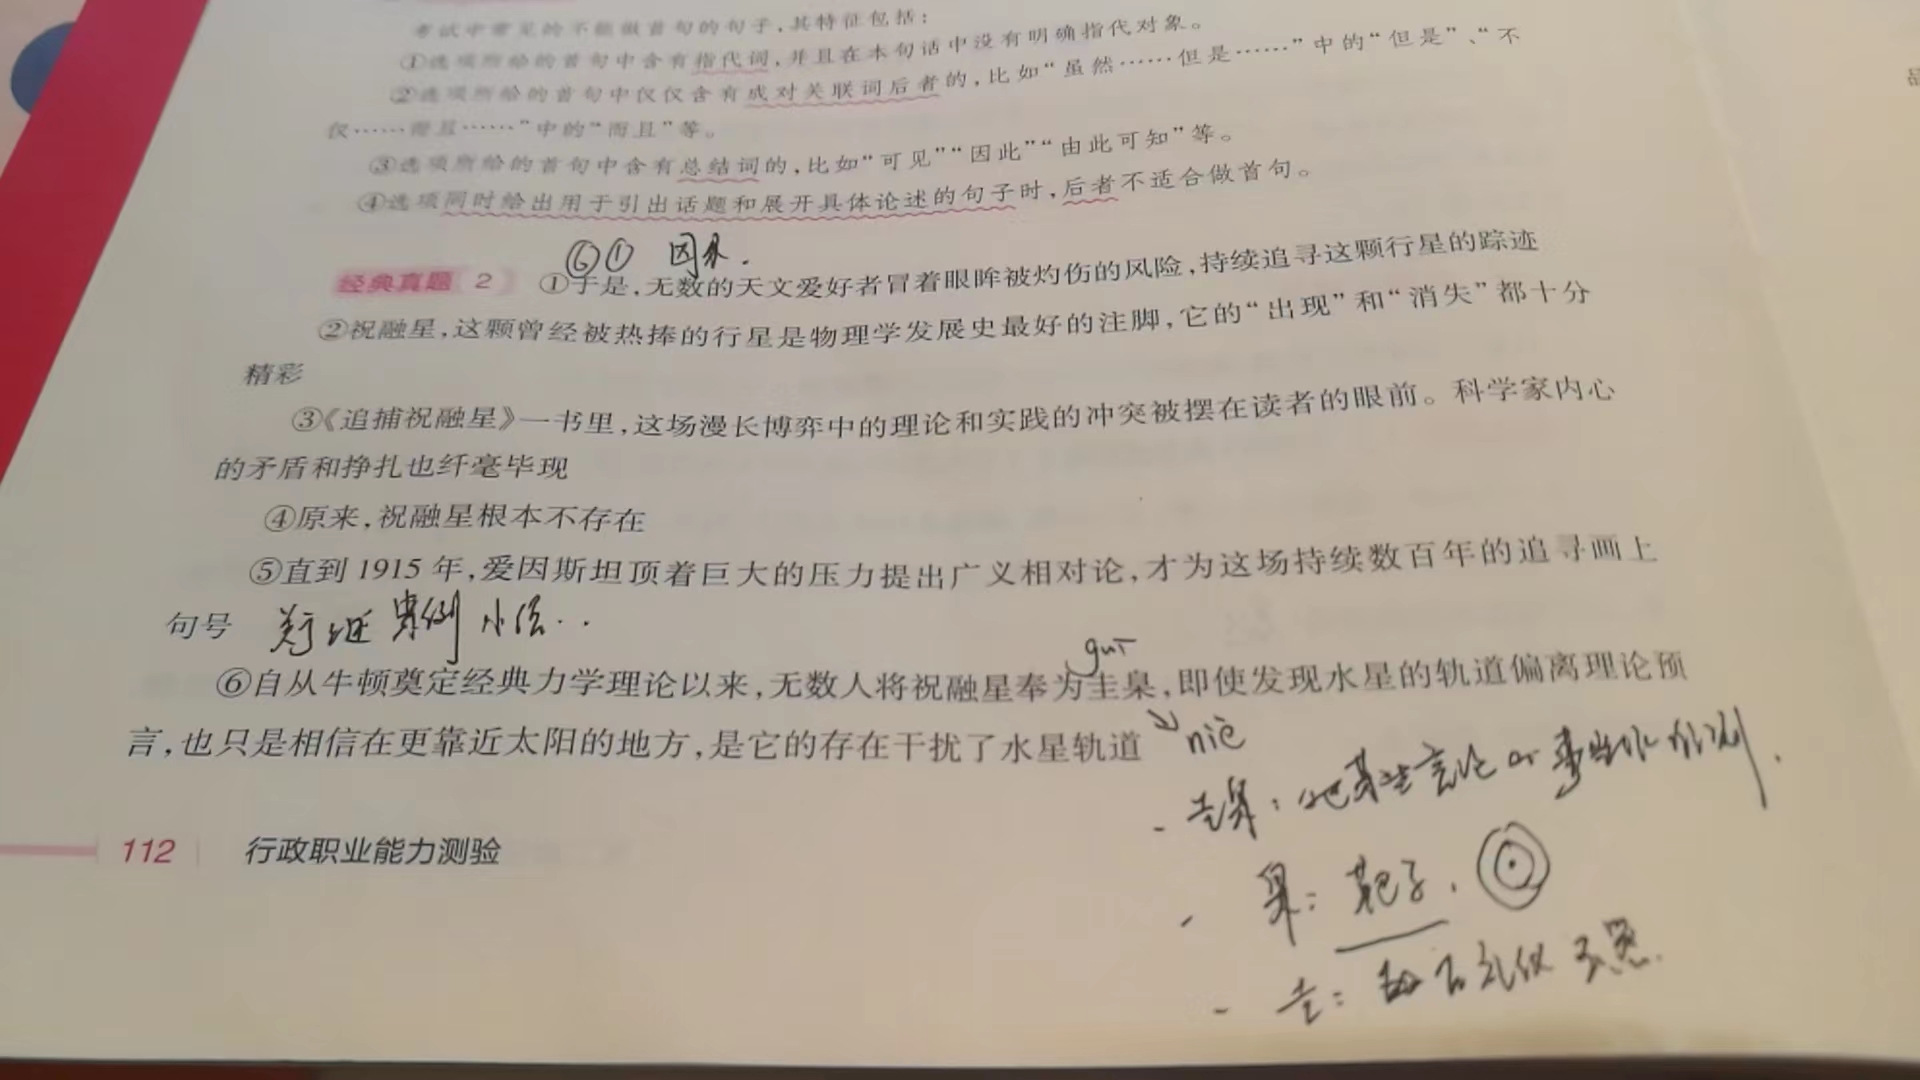 考试中常见的不能做首句的句子，其特征包括：
①选项所给的首句中含有指代词，并且在本句话中没有明确指代对象。
②选项所给的首句中仅仅含有成对关联词后者的，比如“虽然……但是……”中的“但是”、“不
仅……而且……”中的“而且”等。
③选项所给的首句中含有总结词的，比如“可见”“因此”“由此可知”等。
④选项同时给出用于引出话题和展开具体论述的句子时，后者不适合做首句。
⑥① 因果.
经典真题 2 ①于是，无数的天文爱好者冒着眼眸被灼伤的风险，持续追寻这颗行星的踪迹
②祝融星，这颗曾经被热捧的行星是物理学发展史最好的注脚，它的“出现”和“消失”都十分
精彩
③《追捕祝融星》一书里，这场漫长博弈中的理论和实践的冲突被摆在读者的眼前。科学家内心
的矛盾和挣扎也纤毫毕现
④原来，祝融星根本不存在
⑤直到1915年，爱因斯坦顶着巨大的压力提出广义相对论，才为这场持续数百年的追寻画上
句号
案例
⑥自从牛顿奠定经典力学理论以来，无数人将祝融星奉为圭臬，即使发现水星的轨道偏离理论预
言，也只是相信在更靠近太阳的地方，是它的存在干扰了水星轨道
niè
- 圭臬：把某些言论or事当成准则.
- 臬：靶子.
- 圭：古礼仪玉器.
112 行政职业能力测验